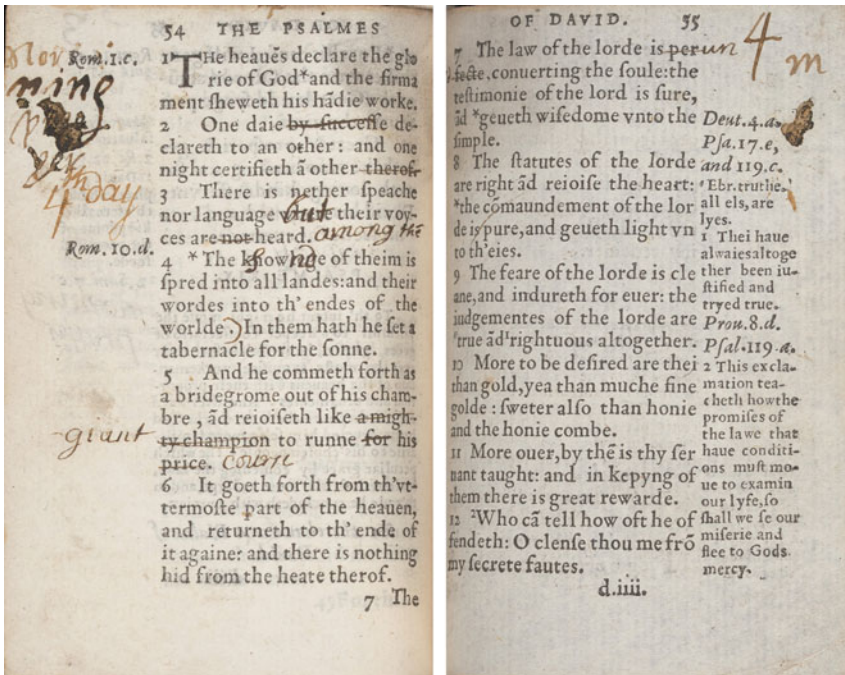 54 THE PSALMES
Rom.1.c.
ning
4th day
1 THe heauẽs declare the glo
rie of God*and the firma
ment sheweth his hãdie worke.
2 One daie by successe de-
clareth to an other: and one
night certifieth ã other therof.
3 There is nether speache
nor language but their voy-
ces are not heard. among thẽ
Rom. 10.d.
4 *The knowlge of theim is
spred into all landes:and their
wordes into th' endes of the
worlde.)In them hath he set a
tabernacle for the sonne.
5 And he commeth forth as
a bridegrome out of his cham-
bre, ãd reioiseth like a migh-
giant
ty champion to runne for his
price. course
6 It goeth forth from th'vt-
termoste part of the heauen,
and returneth to th' ende of
it againe: and there is nothing
hid from the heate therof.
7 The
OF DAVID. 55
4 m
7 The law of the lorde is per un
fecte, conuerting the soule:the
testimonie of the lord is sure,
ãd *geueth wisedome vnto the
simple.
8 The statutes of the lorde
are right ãd reioise the heart:
*the cõmaundement of the lor
de is pure,and geueth light vn
to th'eies.
9 The feare of the lorde is cle
ane,and indureth for euer: the
iudgementes of the lorde are
'true ãd¹rightuous altogether.
10 More to be desired are thei
than gold,yea than muche fine
golde: sweter also than honie
and the honie combe.
11 More ouer,by thẽ is thy ser
uant taught: and in kepyng of
them there is great rewarde.
12 ²Who cã tell how oft he of
fendeth: O clense thou me frõ
my secrete fautes.
d.iiii.
Deut.4.a.
Psa.17.e,
and 119.c.
'Ebr.truthe,
all els,are
lyes.
1 Thei haue
alwaies altoge
ther been iu-
stified and
tryed true.
Prou.8.d.
Psal.119.a.
2 This excla-
mation tea-
cheth howthe
promises of
the lawe that
haue conditi-
ons must mo-
ue to examin
our lyfe,so
shall we se our
miserie and
flee to Gods
mercy.